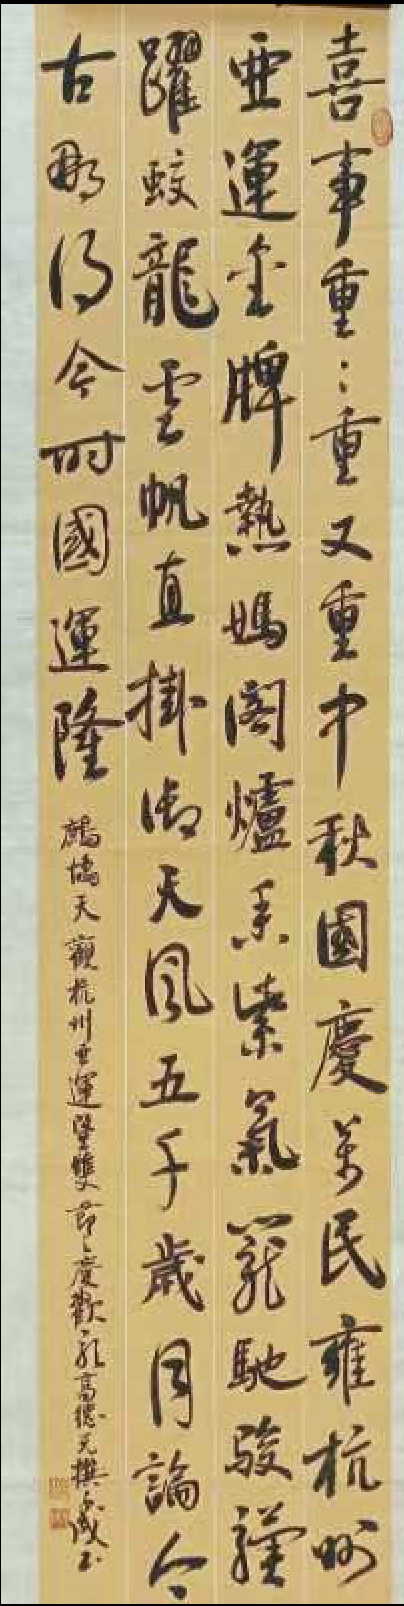 喜事重々重又重中秋國慶萬民雍杭州
亞運金牌熱媽閣爐香紫氣籠馳駿驥
躍蛟龍雲帆直掛御天風五千歲月論今
古那得今時國運隆
鷓鴣天觀杭州亞運暨雙節慶歡高德元撰